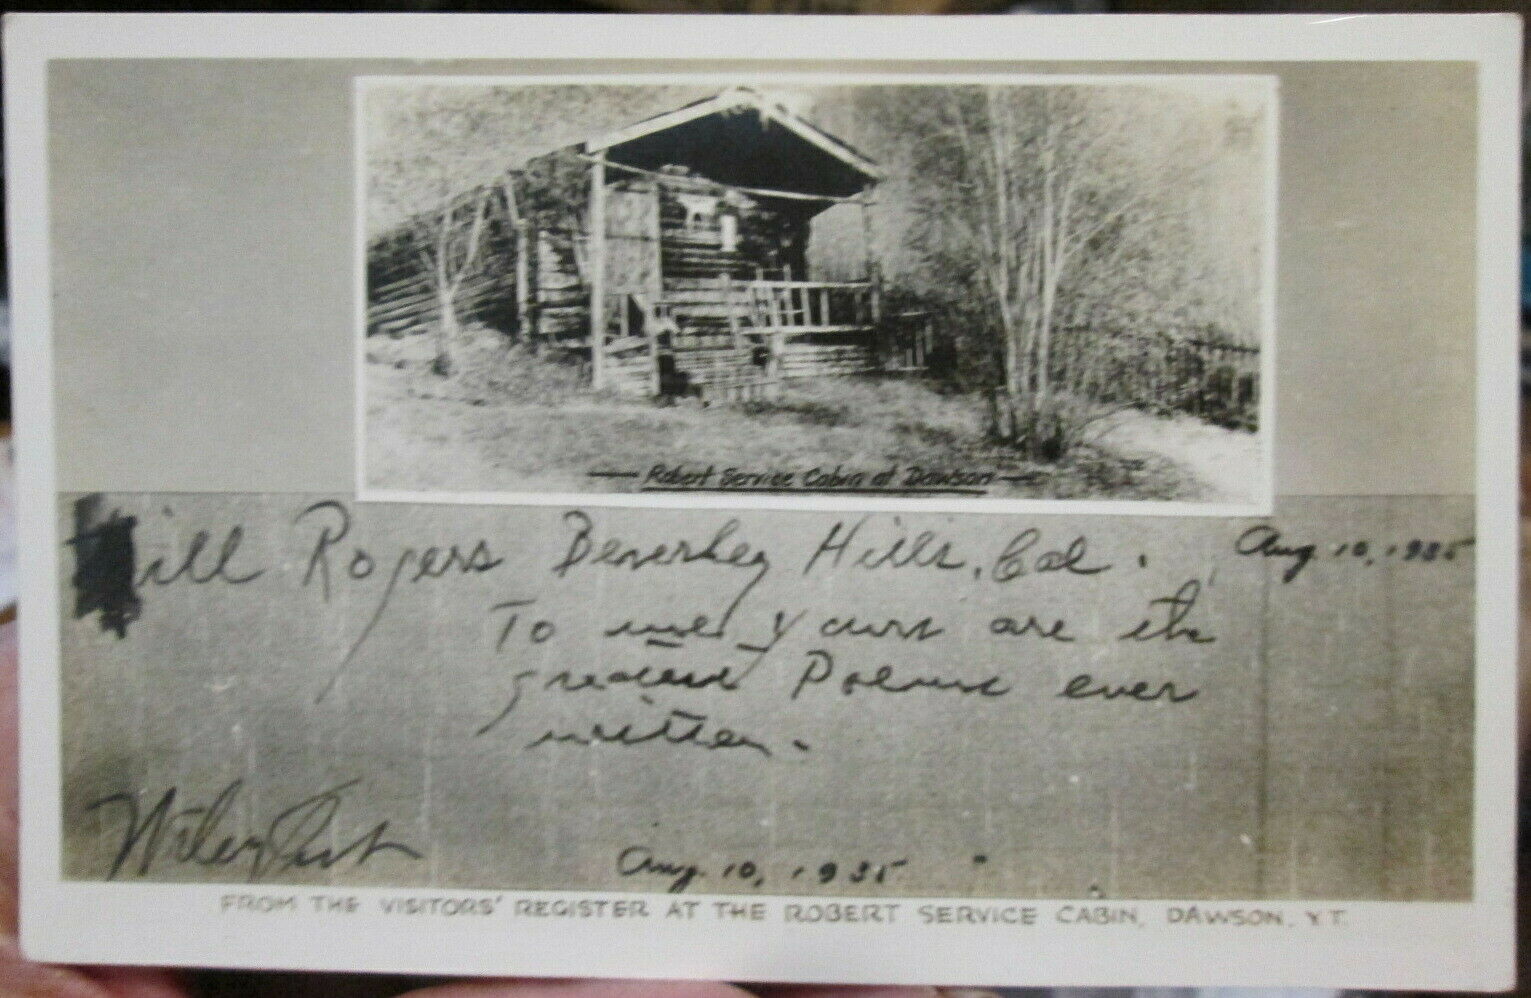 Robert Service Cabin at Dawson
Will Rogers Beverley Hills, Cal. Aug 10, 1935
To me yours are the
greatest Poems ever
written.
Wiley Post
Aug. 10, 1935
FROM THE VISITORS' REGISTER AT THE ROBERT SERVICE CABIN, DAWSON, Y.T.